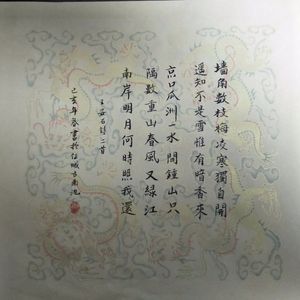 墙角數枝梅凌寒獨自開
遥知不是雪惟有暗香來
京口瓜洲一水間鐘山只
隔數重山春風又綠江
南岸明月何時照我還
王安石詩二首
己亥年書於任城古南池